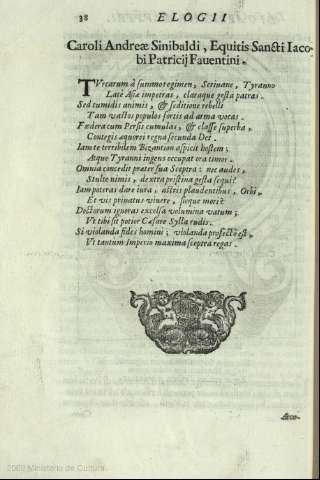 38 ELOGII
Caroli Andreæ Sinibaldi, Equitis Sancti Iaco-
bi Patricij Fauentini.
TVrcarum à summo regimen, Scriuane, Tyranno
Latè Asiæ impetras, claraque gesta patras.
Sed tumidis animis, & seditione rebelli
Tam vastos populos fortis ad arma vocas.
Fœdera cum Persis cumulas, & classe superba,
Contegis æquoris regna secunda Dei.
Iam te terribilem Bizantion aspicit hostem;
Atque Tyranni ingens occupat ora timor.
Omnia concedit præter sua Sceptra: nec audes,
Stulte nimis, dextra pristina gesta sequi?
Iam poteras dare iura, astris plaudentibus, Orbi,
Et vis priuatus viuere, sicque mori?
Doctorum ignoras excelsa volumina vatum;
Vt tibi sit potior Cæsare Sylla rudis.
Si violanda fides homini; violanda profectò est,
Vt tantum Imperio maxima sceptra regas.
Aco-
2009 Ministerio de Cultura